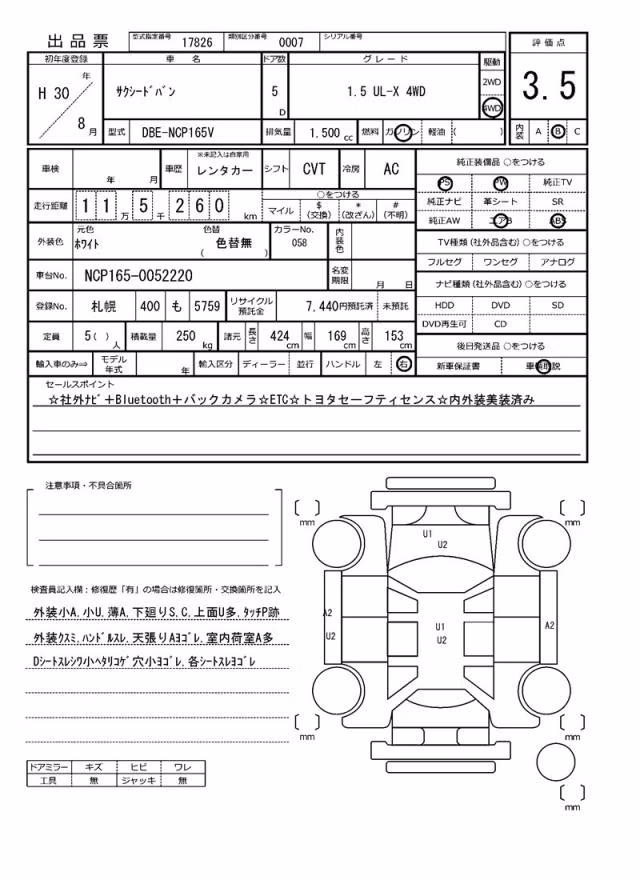 出品票
型式指定番号 17826 類別区分番号 0007 シリアル番号
評価点
初年度登録 車名 ドア数 グレード 駆動
H 30 年 8 月
サクシードバン
5 D
1.5 UL-X 4WD
2WD
4WD
3.5
型式 DBE-NCP165V 排気量 1.500 cc 燃料 ガソリン 軽油 ( )
内装 A B C
車検 年 月 車歴 ※未記入は自家用 レンタカー シフト CVT 冷房 AC
純正装備品 ○をつける
PS PW 純正TV
純正ナビ 革シート SR
純正AW エアB ABS
走行距離 11万5千260 km
○をつける
マイル $(交換) *(改ざん) #(不明)
外装色 元色 ホワイト 色替 ( 色替無 ) カラーNo. 058 内装色
TV種類(社外品含む)○をつける
フルセグ ワンセグ アナログ
車台No. NCP165-0052220 名変期限 月 日
ナビ種類(社外品含む)○をつける
HDD DVD SD
DVD再生可 CD
登録No. 札幌 400 も 5759 リサイクル預託金 7,440円預託済 未預託
定員 5( )人 積載量 250 kg 諸元 長さ 424 cm 幅 169 cm 高さ 153 cm
後日発送品 ○をつける
新車保証書 車輌取説
輸入車のみ⇒ モデル年式 年 輸入区分 ディーラー 並行 ハンドル 左 右
セールスポイント
☆社外ナビ+Bluetooth+バックカメラ☆ETC☆トヨタセーフティセンス☆内外装美装済み
注意事項・不具合箇所
検査員記入欄:修復歴「有」の場合は修復箇所・交換箇所を記入
外装小A,小U,薄A,下廻りS,C,上面U多,タッチP跡
外装クスミ,ハンドルスレ,天張りAヨゴレ,室内荷室A多
Dシートスレシワ小ヘタリコゲ穴小ヨゴレ,各シートスレヨゴレ
ドアミラー キズ ヒビ ワレ
工具 無 ジャッキ 無
mm
mm
U1
U2
A2
U2
U1
U2
A2
mm
mm
mm